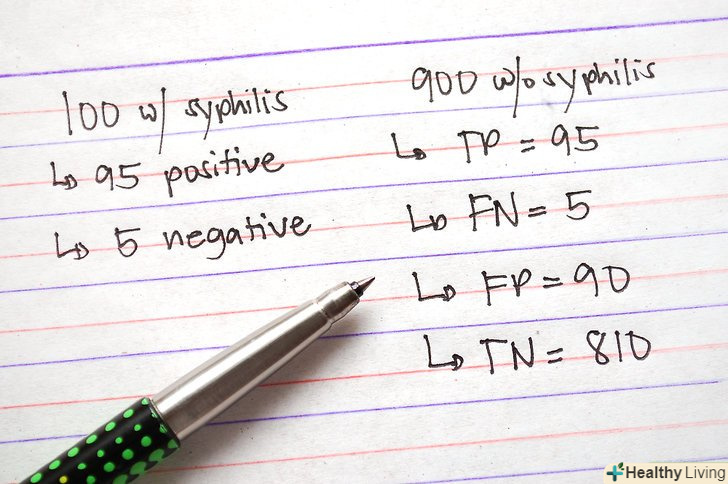 100 w/ syphilis
↳ 95 positive
↳ 5 negative
900 w/o syphilis
↳ TP = 95
↳ FN = 5
↳ FP = 90
↳ TN = 810
Healthy Living